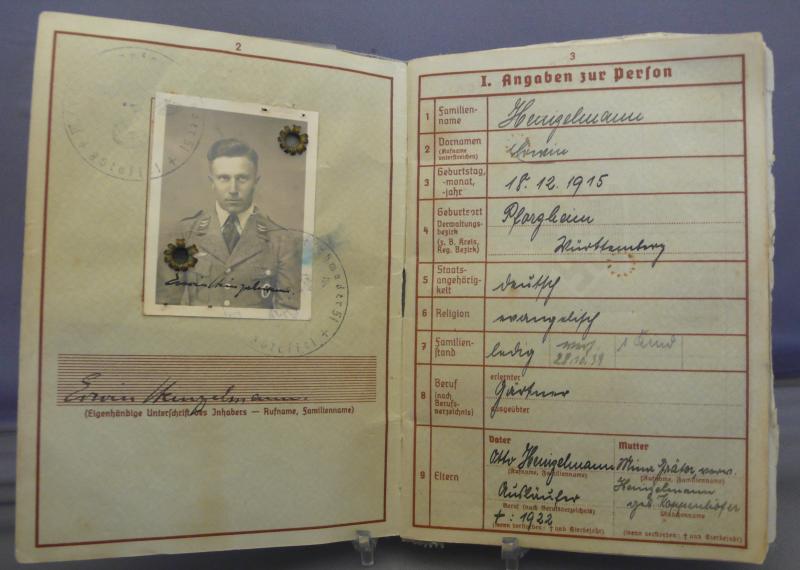 2
Erwin Heinzelmann
Erwin Heinzelmann
(Eigenhändige Unterschrift des Inhabers — Rufname, Familienname)
3
I. Angaben zur Person
1 Familien-
name
Heinzelmann
2 Vornamen
(Rufname
unterstreichen)
Erwin
3 Geburtstag,
-monat,
-jahr
18. 12. 1915
4 Geburtsort
Verwaltungs-
bezirk
(z. B. Kreis,
Reg. Bezirk)
Pforzheim
Württemberg
5 Staats-
angehörig-
keit
deutsch
6 Religion
evangelisch
7 Familien-
stand
ledig
verh.
28.10.39
1 Kind
8 Beruf
(nach
Berufs-
verzeichnis)
erlernter
Gärtner
ausgeübter
9 Eltern
Vater
Otto Heinzelmann
(Rufname, Familienname)
Ausläufer
Beruf (nach Berufsverzeichnis)
† : 1922
(wenn verstorben: † und Sterbejahr)
Mutter
Mina verw.
(Rufname, Familienname)
Heinzelmann
geb. Koppenhöfer
Mädchenname
(wenn verstorben: † und Sterbejahr)